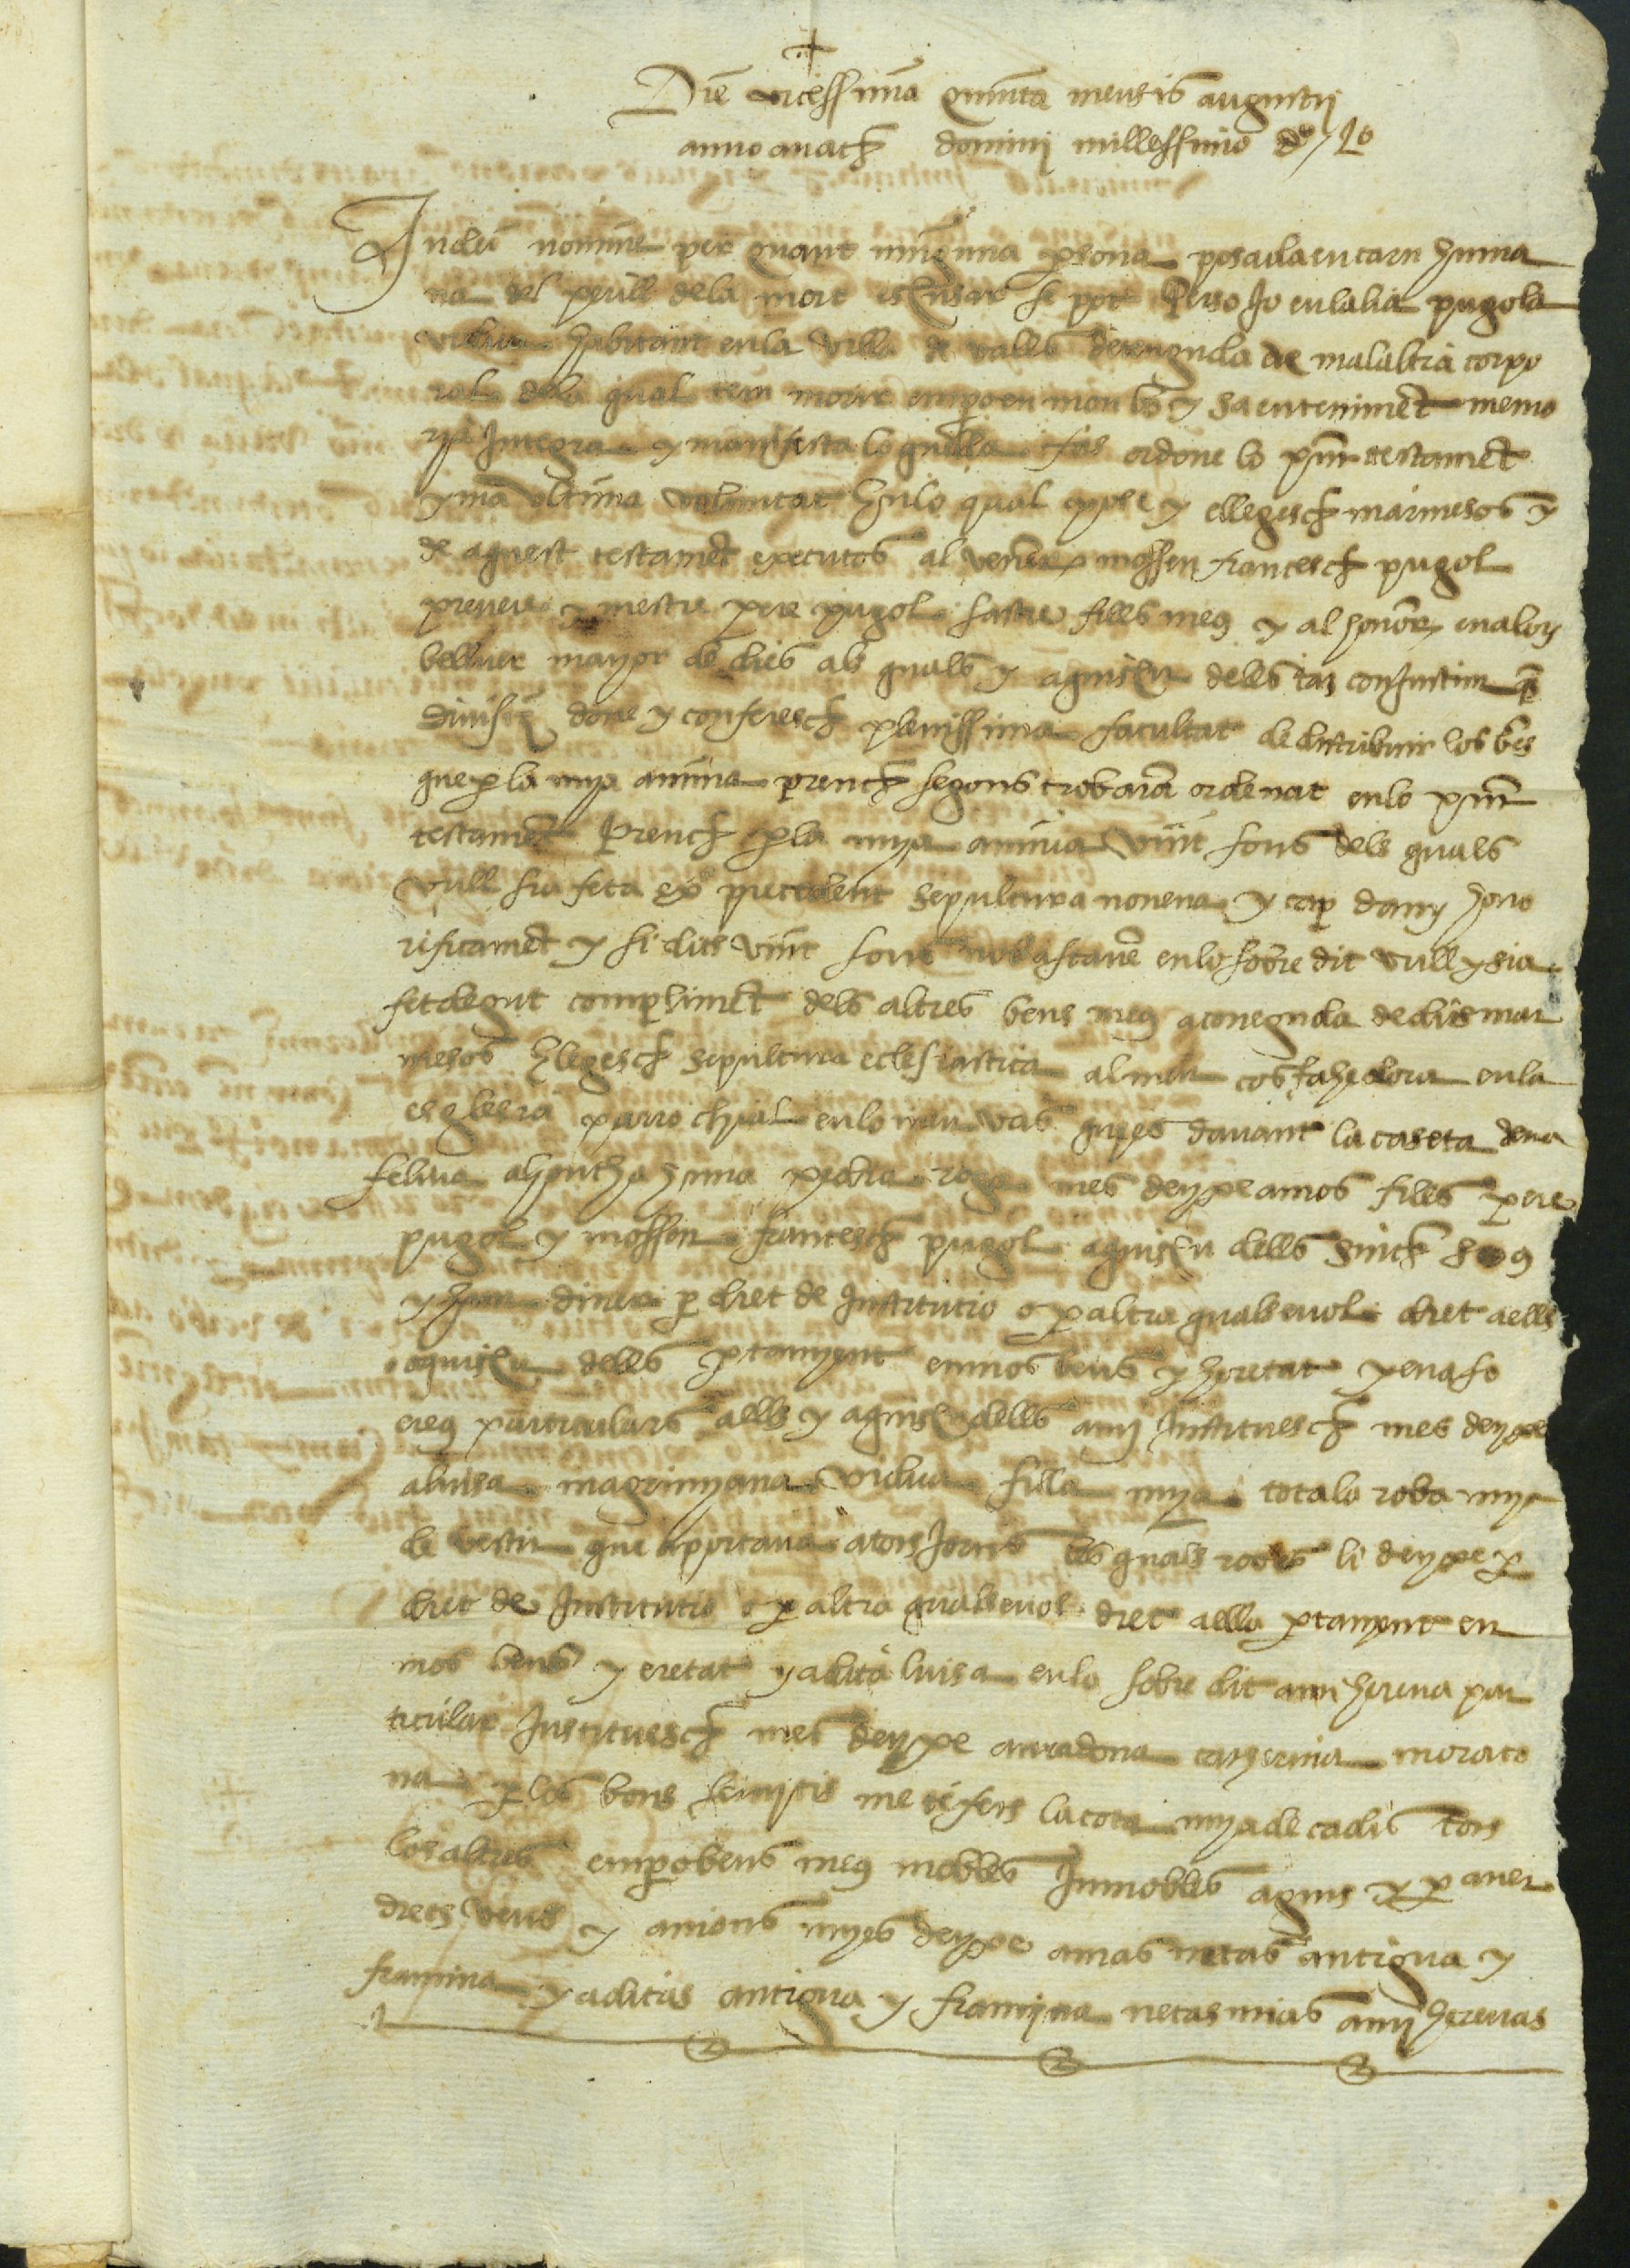 Die vicessima quinta mensis augustij
anno a natt dominij millessimo dº /Lº
In dei nomine per quant ninguna psona posada en carn huma
na del perill dela mort scusar se pot Perso Jo eulalia pugola
viuda habitant enla vila de valls detenguda de malaltia corpo
ral dela qual tem morir empero en mon bo y sa enteniment memo
ria integra y manifesta loquella fas ordone lo pnt testament
y ma ultima voluntat Enlo qual pose y ellegesch marmesos y
de aquest testament executos al vener mossen francesch pugol
prevere y mestre pere pugol sastre fills meus y al honor en aloy
bellver mayor de dies als quals y aquiscu dells tan conjuntim q
divisim done y conferesch plenissima facultat de distribuir los bes
que p la mya anima prench segons trobaran ordenat enlo pnt
testament Prench p la mya anima vint sous dels quals
vull sia feta precedent sepultura novena y cap dany hono
rificament y si dits vint sous no bastaven enlo sobre dit vull y sia
fet degut compliment dels altres bens meus a coneguda de dits mar
mesos Elegesch sepultura eclesiastica al meu cos fahedora enla
esglesia parrochial enlo meu vas qui es davant la caseta dena
feliua huna pedra roga mes deyxe a mos fills pere
pugol y mossen francesch pugol aquiscu dells sinch sous
y hun diner p dret de Institutio o p altra qualsevol dret a ells
o aquiscu dells ptanyent en mos bens y heretat y en aso
ereus particulars a ells y aquiscu dells a mj Instituesch mes deyxe
a luisa magrinyana viuda filla mya tota la roba mya
de vestir que aportava a tots Jorns les quals robes li deyxe p
dret de Institutio o p altra qualsevol dret a ella ptanyent en
mos bens y eretat y a dita luisa enlo sobre dit a mj hereva par
ticular Instituesch mes deyxe a la dona catherina morato
na p los bons serveys me te fets la cota mya de cadis tots
los altres empero bens meus mobles Inmobles aguts y p aver
drets veus y actions myes deyxe a mas netas antigua y
framina y a ditas antigua y framina netas mias a mj herevas